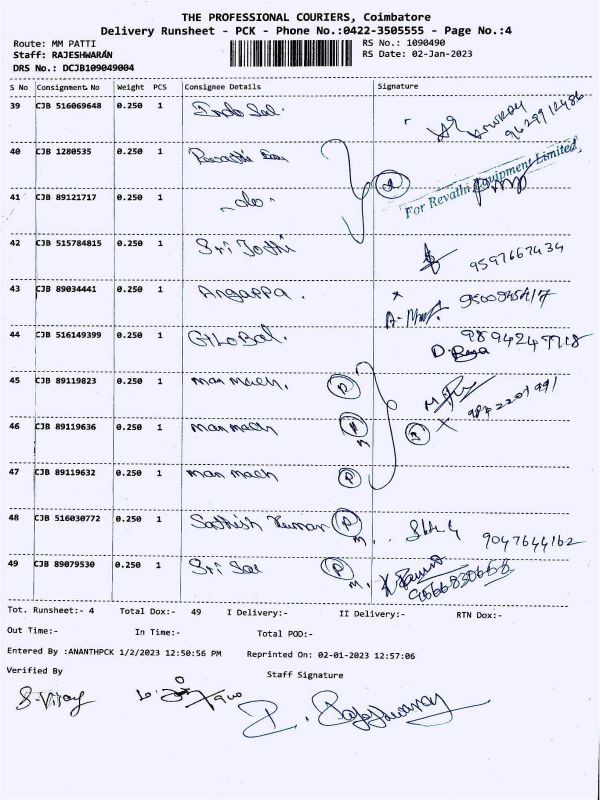 THE PROFESSIONAL COURIERS, Coimbatore
Delivery Runsheet - PCK - Phone No.:0422-3505555 - Page No.:4
Route: MM PATTI
RS No.: 1090490
Staff: RAJESHWARAN
RS Date: 02-Jan-2023
DRS No.: DCJB109049004
S No Consignment No Weight PCS Consignee Details Signature
39 CJB 516069648 0.250 1 9629912486
40 CJB 1280535 0.250 1
For Revathi Equipment Limited,
41 CJB 89121717 0.250 1 -do-
42 CJB 515784815 0.250 1 Sri Jothi 9597667434
43 CJB 89034441 0.250 1 Angappa.
44 CJB 516149399 0.250 1 GILOBal.
45 CJB 89119823 0.250 1 man mach. P
46 CJB 89119636 0.250 1 man mach
47 CJB 89119632 0.250 1 man mach P
48 CJB 516030772 0.250 1 Sathish Kumar P M. 9047644162
49 CJB 89079530 0.250 1 Sri Sai P M. 9566830668
Tot. Runsheet:- 4 Total Dox:- 49 I Delivery:- II Delivery:- RTN Dox:-
Out Time:- In Time:- Total POD:-
Entered By :ANANTHPCK 1/2/2023 12:50:56 PM Reprinted On: 02-01-2023 12:57:06
Verified By Staff Signature
S.Vijay